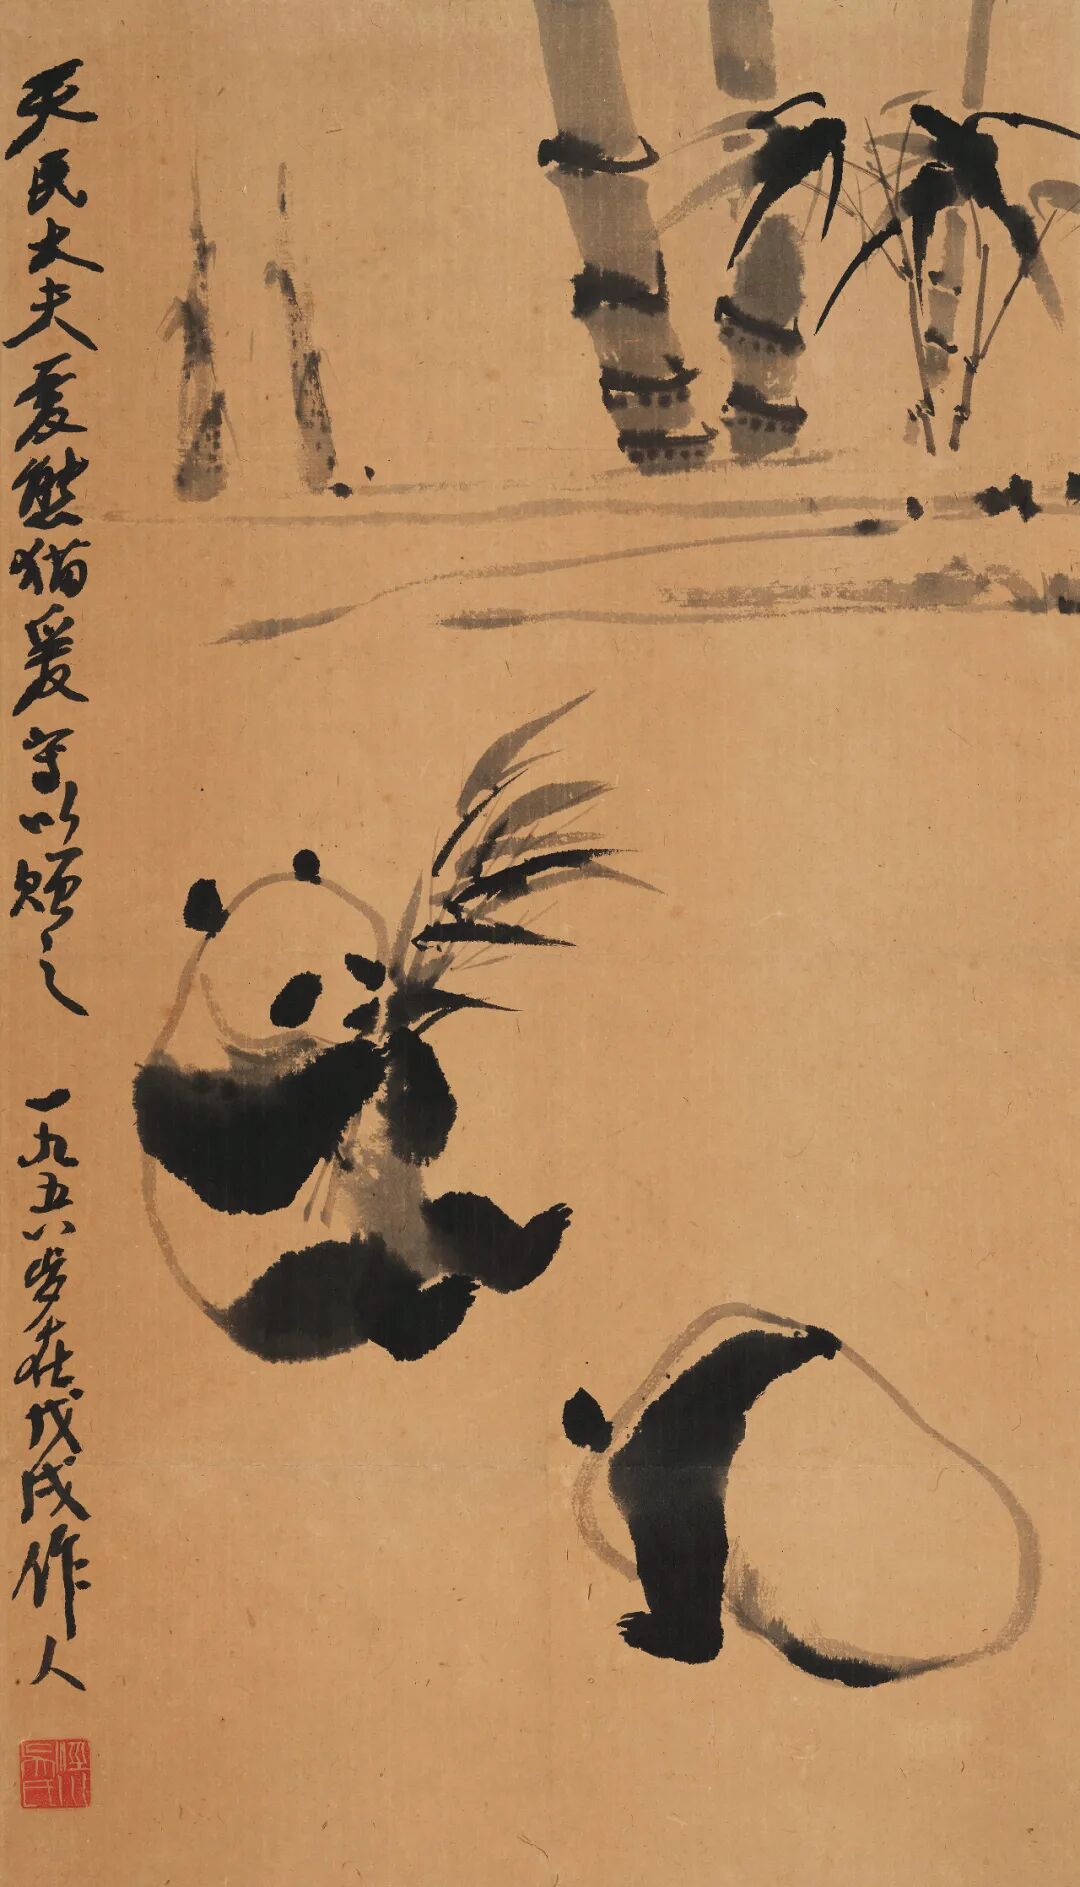 天民大夫爱熊猫爰写以赠之 一九五八岁在戊戌作人
泾川吴氏